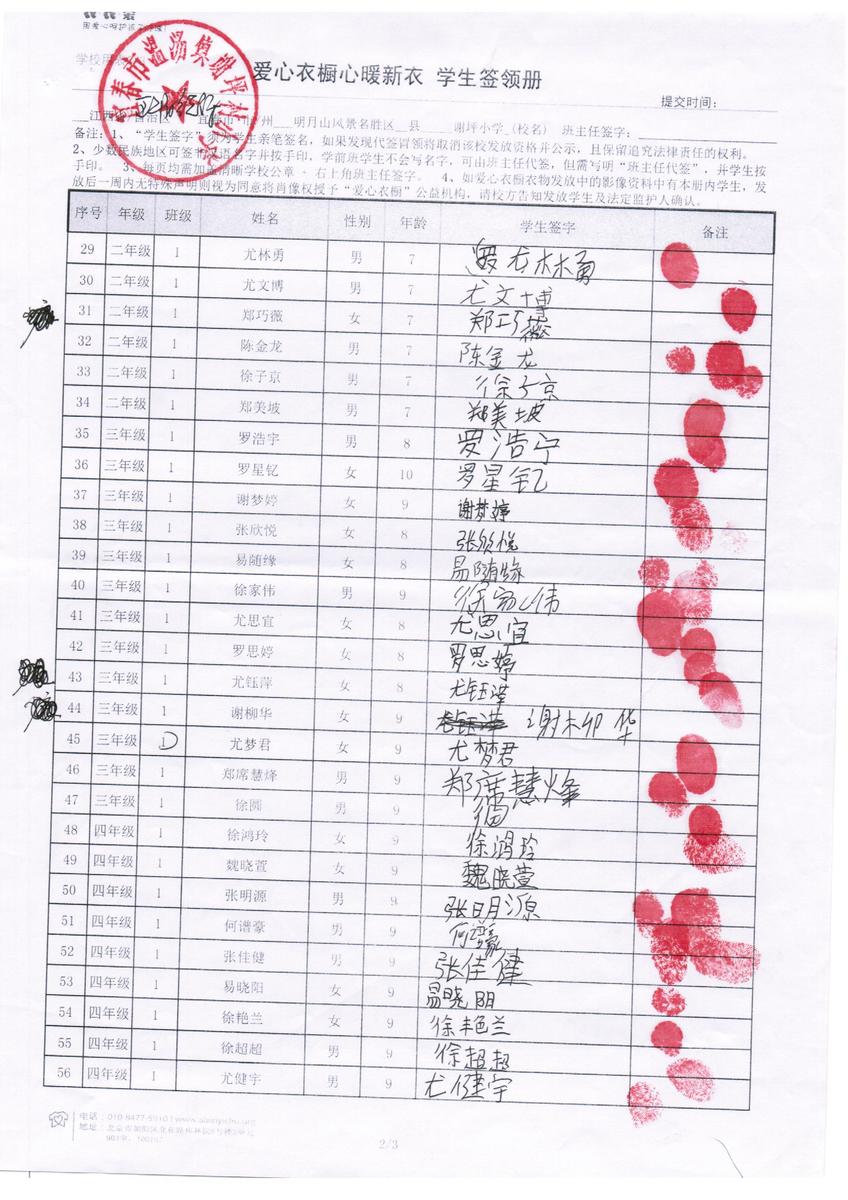 用爱心呵护孩子
爱心衣橱心暖新衣 学生签领册
提交时间：
江西 自治区 宜春市 州 明月山风景名胜区 县 谢坪小学 (校名) 班主任签字：
备注：1、“学生签字”须为学生亲笔签名，如果发现代签冒领将取消该校发放资格并公示，且保留追究法律责任的权利。
2、少数民族地区可签 汉语名字并按手印，学前班学生不会写名字，可由班主任代签，但需写明“班主任代签”，并学生按
手印。 3、每页均需加盖清晰学校公章，右上角班主任签字。 4、如爱心衣橱衣物发放中的影像资料中有本册内学生，发
放后一周内无特殊声明则视为同意将肖像权授予“爱心衣橱”公益机构，请校方告知发放学生及法定监护人确认。
序号 年级 班级 姓名 性别 年龄 学生签字 备注
29 二年级 1 尤林勇 男 7 尤林勇
30 二年级 1 尤文博 男 7 尤文博
31 二年级 1 郑巧薇 女 7 郑巧薇
32 二年级 1 陈金龙 男 7 陈金龙
33 二年级 1 徐子京 男 7 徐子京
34 二年级 1 郑美坡 男 7 郑美坡
35 三年级 1 罗浩宇 男 8 罗浩宁
36 三年级 1 罗星钇 女 10 罗星钇
37 三年级 1 谢梦婷 女 9 谢梦婷
38 三年级 1 张欣悦 女 8 张欣悦
39 三年级 1 易随缘 女 8 易随缘
40 三年级 1 徐家伟 男 9 徐家伟
41 三年级 1 尤思宜 女 8 尤思宜
42 三年级 1 罗思婷 女 8 罗思婷
43 三年级 1 尤钰萍 女 8 尤钰萍
44 三年级 1 谢柳华 女 9 谢柳华
45 三年级 尤梦君 女 9 尤梦君
46 三年级 1 郑席慧烽 男 9 郑席慧烽
47 三年级 1 徐圆 男 9
48 四年级 1 徐鸿玲 女 9 徐鸿玲
49 四年级 1 魏晓萱 女 9 魏晓萱
50 四年级 1 张明源 男 9 张明源
51 四年级 1 何谱豪 男 9 何谱豪
52 四年级 1 张佳健 男 9 张佳健
53 四年级 1 易晓阳 女 9 易晓阳
54 四年级 1 徐艳兰 女 9 徐艳兰
55 四年级 1 徐超超 男 9 徐超超
56 四年级 1 尤健宇 男 9 尤健宇
电话：010-8477-5910 | www.aixinyichu.org
地址：北京市朝阳区
2/3